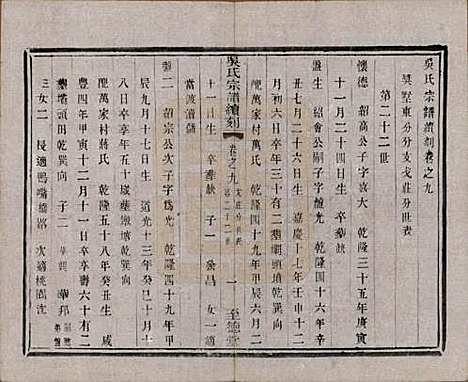 吳氏宗譜續刻卷之九
吳墅東分分支戈莊分世表
第二十二世
懷德 紹高公子字喜大 乾隆三十五年庚寅
十一月二十四日生 卒葬缺
盤生 紹會公嗣子字檀光 乾隆四十六年辛
丑七月二十六日生 嘉慶十七年壬申十二
月初六日卒年三十有二葬壩頭田 子二
配萬家村萬氏 乾隆四十九年甲辰六月二
吳氏宗譜續刻 卷之九 戈莊分世表 第二十二世 一 至德堂
十一日生 卒葬缺 子一 發昌 女一適
當渡濮蕭
盤二 紹宗公次子字爲光 乾隆四十九年甲
辰九月十七日生 道光十三年癸巳十月十
八日卒享年五十歲葬墩塘乾巽向
配萬家村蔣氏 乾隆五十八年癸丑生 咸
豐四年甲寅十二月十一日卒壽六十有二
葬壩頭田乾巽向 子二 華熙 華邦
三女二 長適鴨嘴橋蔣 次適桃園沈